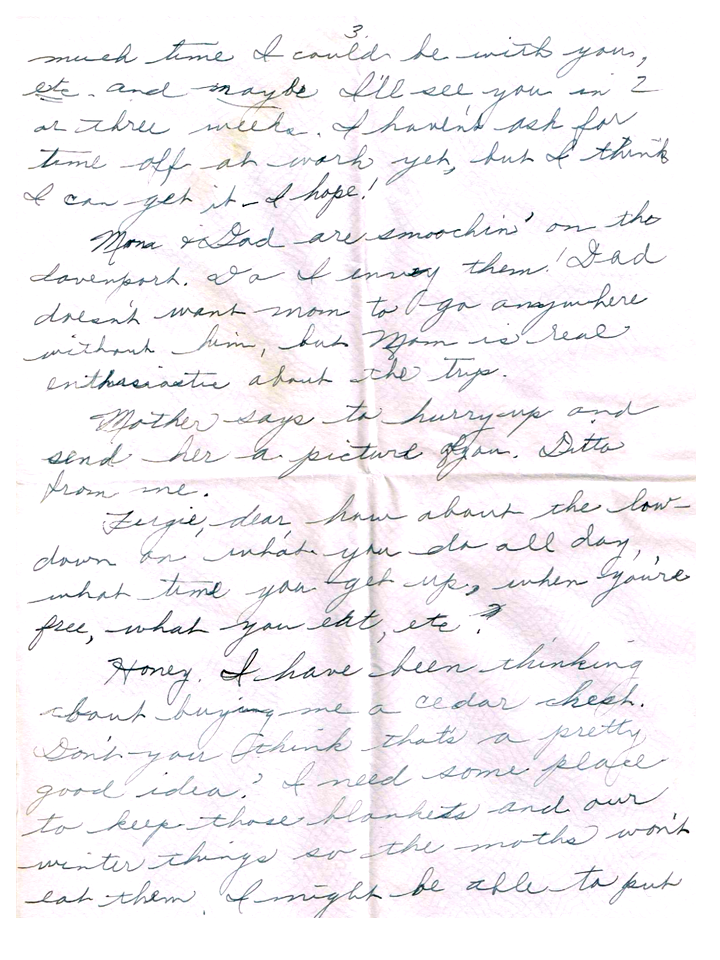 3.
much time I could be with you,
etc. and maybe I'll see you in 2
or three weeks. I haven't ask for
time off at work yet, but I think
I can get it - I hope!
Mom & Dad are smoochin' on the
davenport. Do I envy them! Dad
doesn't want mom to go anywhere
without him, but Mom is real
enthasiastic about the trip.
Mother says to hurry up and
send her a picture of you. Ditto
from me.
Fergie, dear, how about the low-
down on what you do all day,
what time you get up, when you're
free, what you eat, etc?
Honey. I have been thinking
about buying me a cedar chest.
Don't you think that's a pretty
good idea? I need some place
to keep those blankets and our
winter things so the moths won't
eat them. I might be able to put